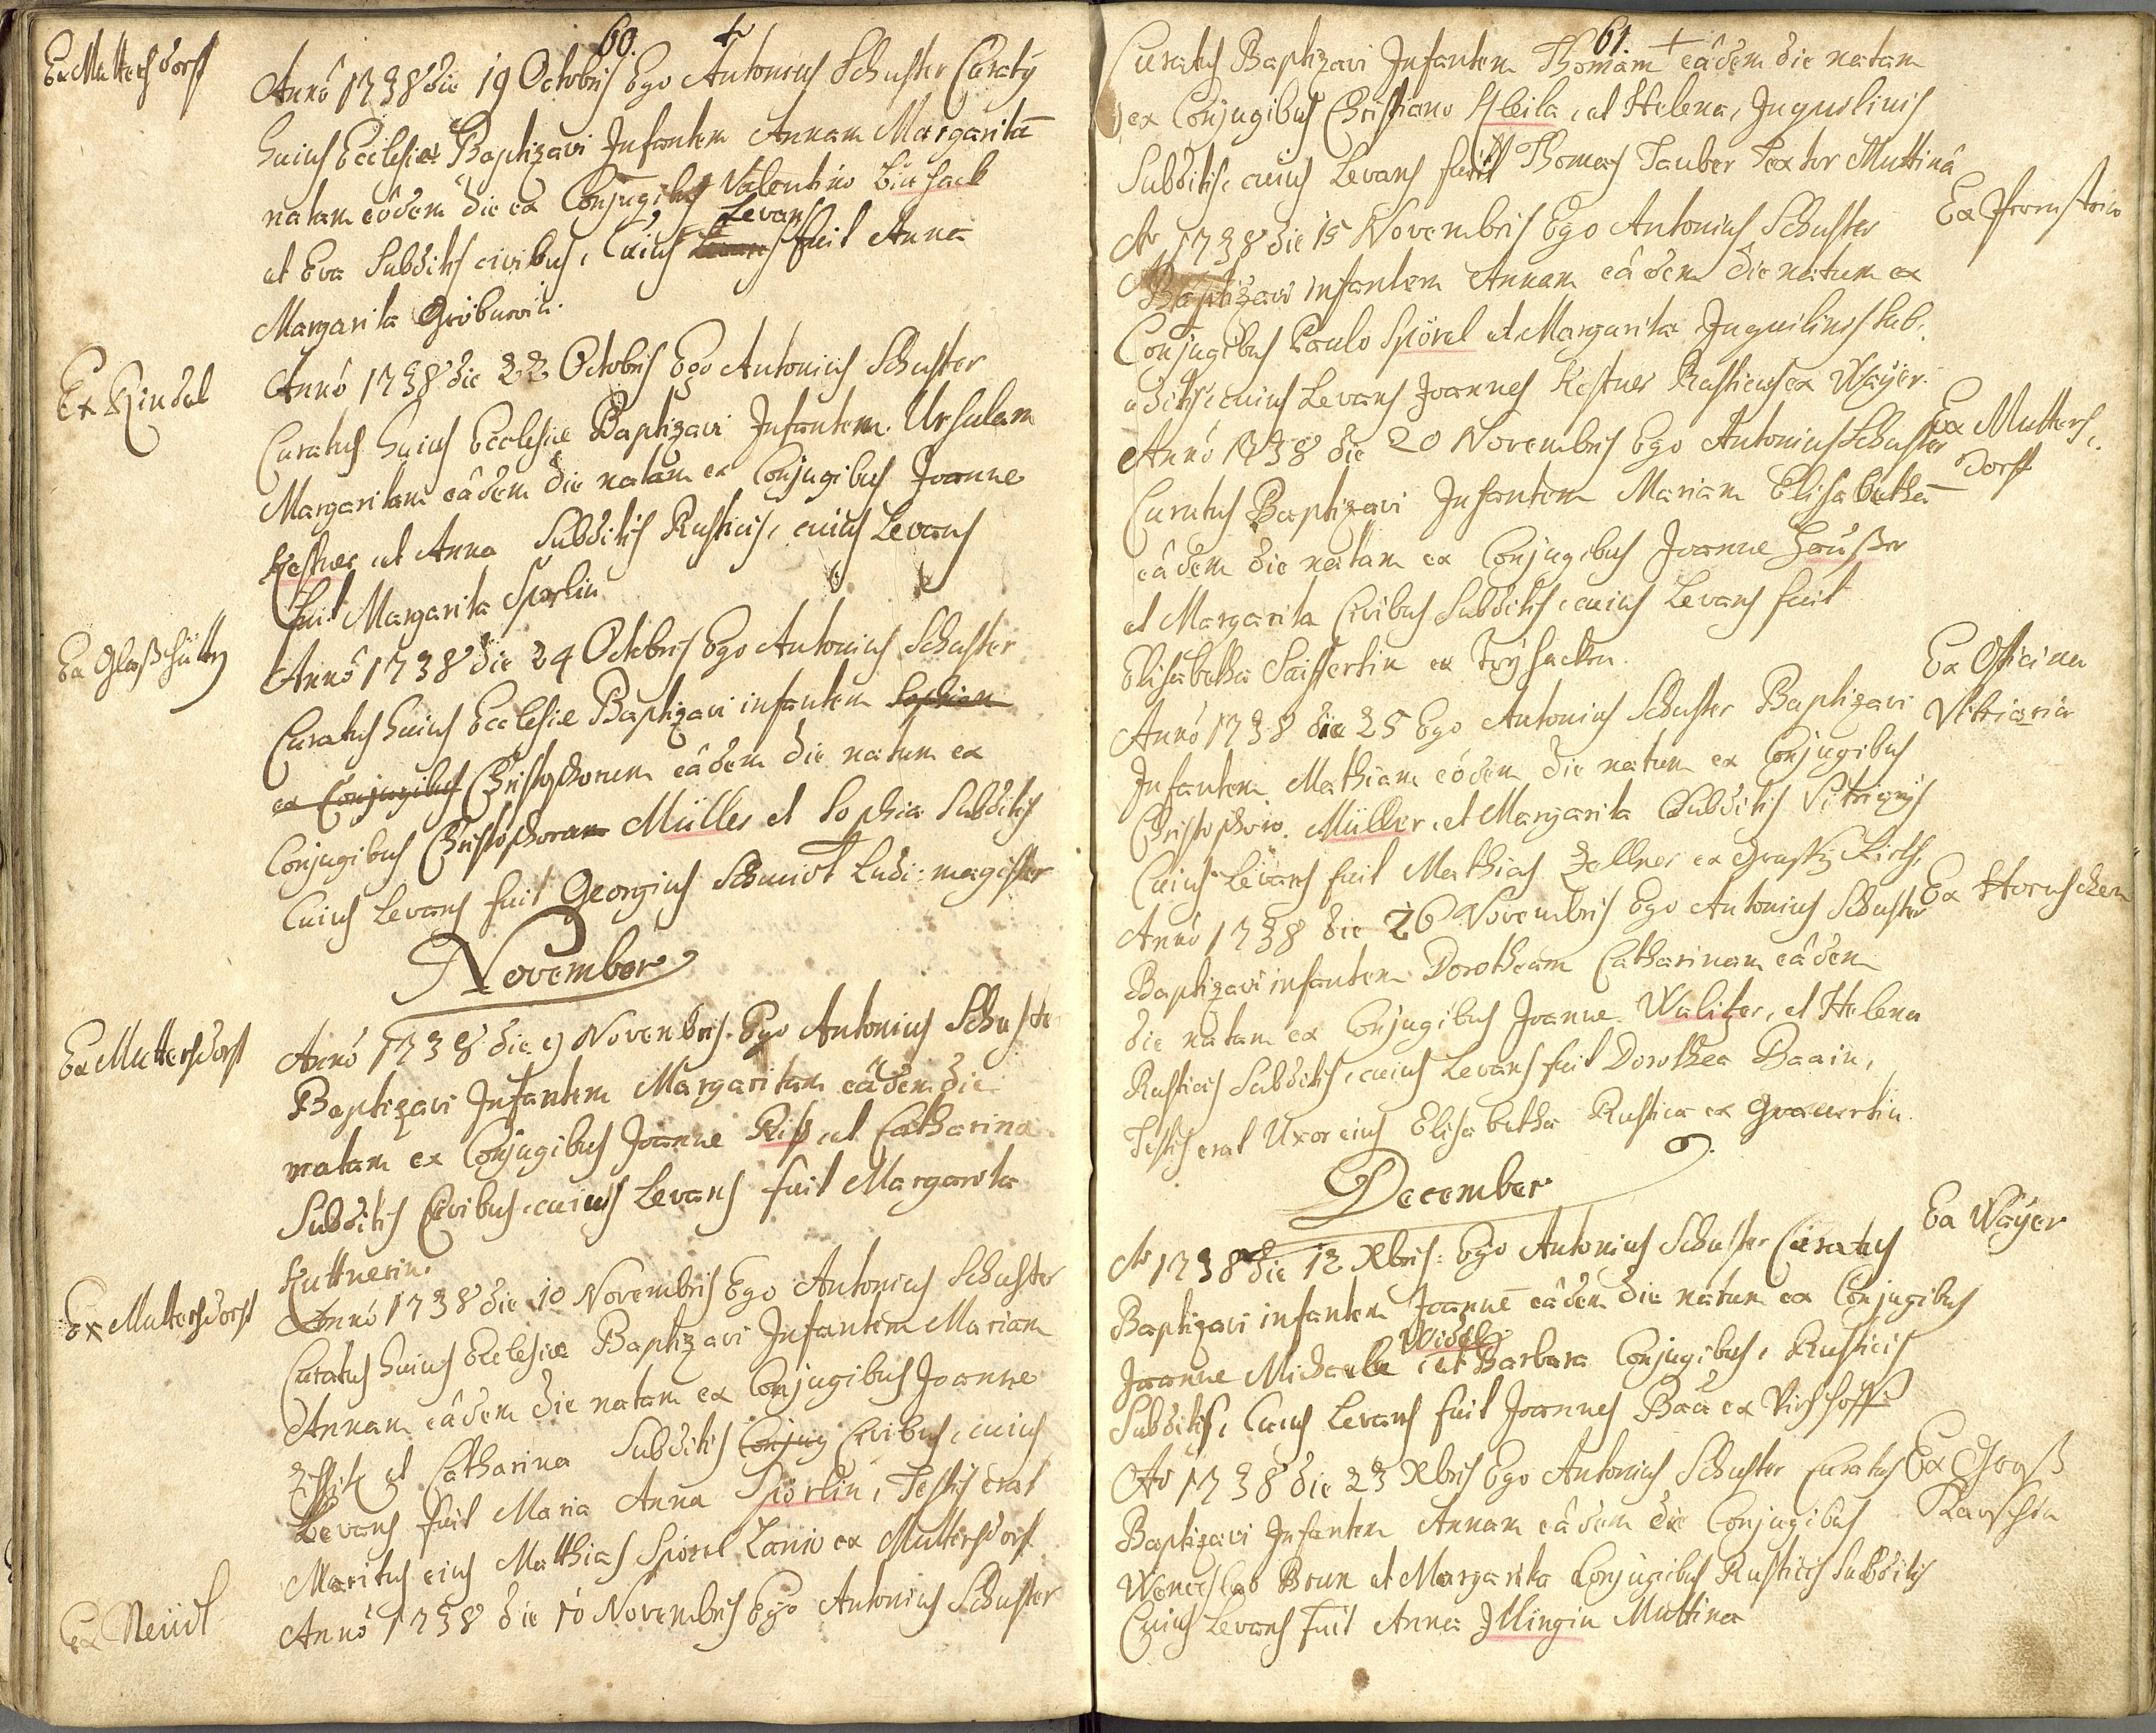 60.
Ex Muttersdorff
Annô 1738 die 19 Octobris Ego Antonius Schuster Curatq
huius Ecclesiæ Baptizavi Infantem Annam Margaritā
natam eôdem die ex Conjugibus Valentino
et Eva Subditis civibus, Cuius Levans fuit Anna
Margarita
Annô 1738 die 22 Octobris Ego Antonius Schuster
Curatus huius Ecclesiæ Baptizavi Infantem Ursulam
Margaritam eâdem die natam ex Conjugibus Joanne
Kestner et Anna Subditis Rusticis, cuius Levans
fuit Margarita Sporlin
Ex Glaßhütten
Annô 1738 die 24 Octobris Ego Antonius Schuster
Curatus huius Ecclesiæ Baptizavi infantem Sophiam
ex Conjugibus Christophorum eâdem die natum ex
Conjugibus Christophoro Müller et Sophia Subditis
Cuius Levans fuit Georgius Schmidt Ludi-magister
November
Ex Muttersdorff
Annô 1738 die 9 Novembris Ego Antonius Schuster
Baptizavi Infantem Margaritam eâdem die
natam ex Conjugibus Joanne Riß et Catharina
Subditis Civibus, cuius Levans fuit Margarita
Huttnerin.
Ex Muttersdorff
Annô 1738 die 10 Novembris Ego Antonius Schuster
Curatus huius Ecclesiæ Baptizavi Infantem Mariam
Annam eâdem die natam ex Conjugibus Joanne
et Catharina Subditis Conjug Civibus, cuius
Levans fuit Maria Anna Spörlin, Testis erat
Maritus eius Matthias Spörl Lanio ex Muttersdorf
Ex Neüdl
Annô 1738 die 10 Novembris Ego Antonius Schuster
61.
Curatus Baptizavi Infantem Thomam eâdem die natam
ex Conjugibus Christiano et Helena, Inquilinis
Subditis, cuius Levans fuit Thomas Tauber Textor Muttinâ
Ao 1738 die 15 Novembris Ego Antonius Schuster
Baptizavi infantem Annam eâdem die natam ex
Conjugibus Paulo Spörel et Margarita Inquilinis sub,
ditis, cuius Levans Joannes Kestner Rusticus ex Wayer.
Ex Mutters,
dorff
Annô 1738 die 20 Novembris Ego Antonius Schuster
Curatus Baptizavi Infantem Mariam Elisabethā
eâdem die natam ex Conjugibus Joanne Haußer
et Margarita Civibus Subditis, cuius Levans fuit
Elisabetha Saiffertin ex
Ex Officina
Vitriaria
Annô 1738 die 25 Ego Antonius Schuster Baptizavi
Infantem Mathiam eôdem die natum ex Conjugibus
Christophoro Müller, et Margarita Subditis
Cuius Levans fuit Mathias Zellner ex
Annô 1738 die 26 Novembris Ego Antonius Schuster
Baptizavi infantem Dorotheam Catharinam eâdem
die natam ex Conjugibus Joanne Walitzer, et Helena
Rusticis Subditis, cuius Levans fuit Dorothea Baain,
Testis erat Uxor eius Elisabetha Rustica ex
December
Ex Wayer
Ao 1738 die 12 Xbris: Ego Antonius Schuster Curatus
Baptizavi infantem Joannē eâdem die natum ex Conjugibus
Joanne Michaele Widel et Barbara Conjugibus, Rusticis
Subditis, Cuius Levans fuit Joannes Baü ex
Ex Groß
Ao 1738 die 23 Xbris Ego Antonius Schuster Curatus
Baptizavi Infantem Annam eâdem die Conjugibus
Wenceslao Brun et Margarita Conjugibus Rusticis Subditis
Cuius Levans fuit Anna Illingin Muttina